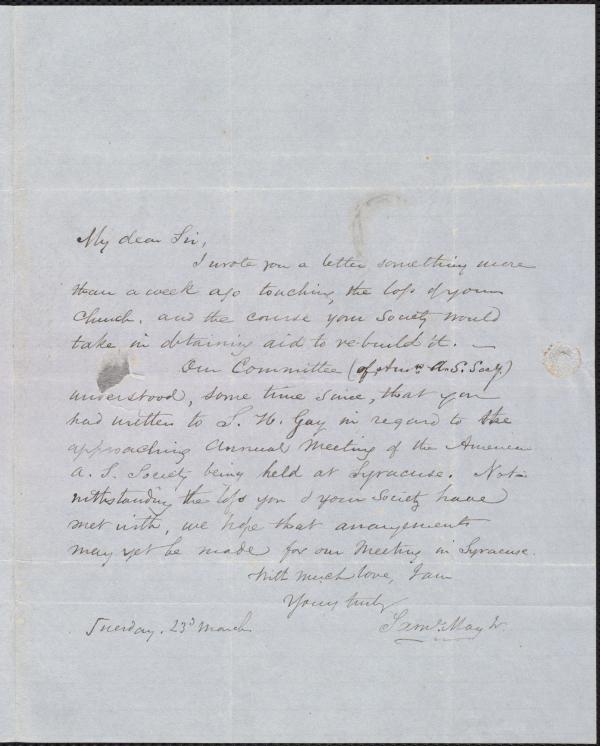 My dear Sir,
I wrote you a letter something more
than a week ago touching the loss of your
Church, and the course your Society would
take in obtaining aid to re-build it. —
Our Committee (of Amn. A. S. Socy.)
understood, some time since, that you
had written to S. H. Gay in regard to the
approaching Annual Meeting of the American
A. S. Society being held at Syracuse. Not-
withstanding the loss you & your Society have
met with, we hope that arrangements
may yet be made for our Meeting in Syracuse.
With much love, I am
Yours truly
Saml. May Jr.
Tuesday. 23d March